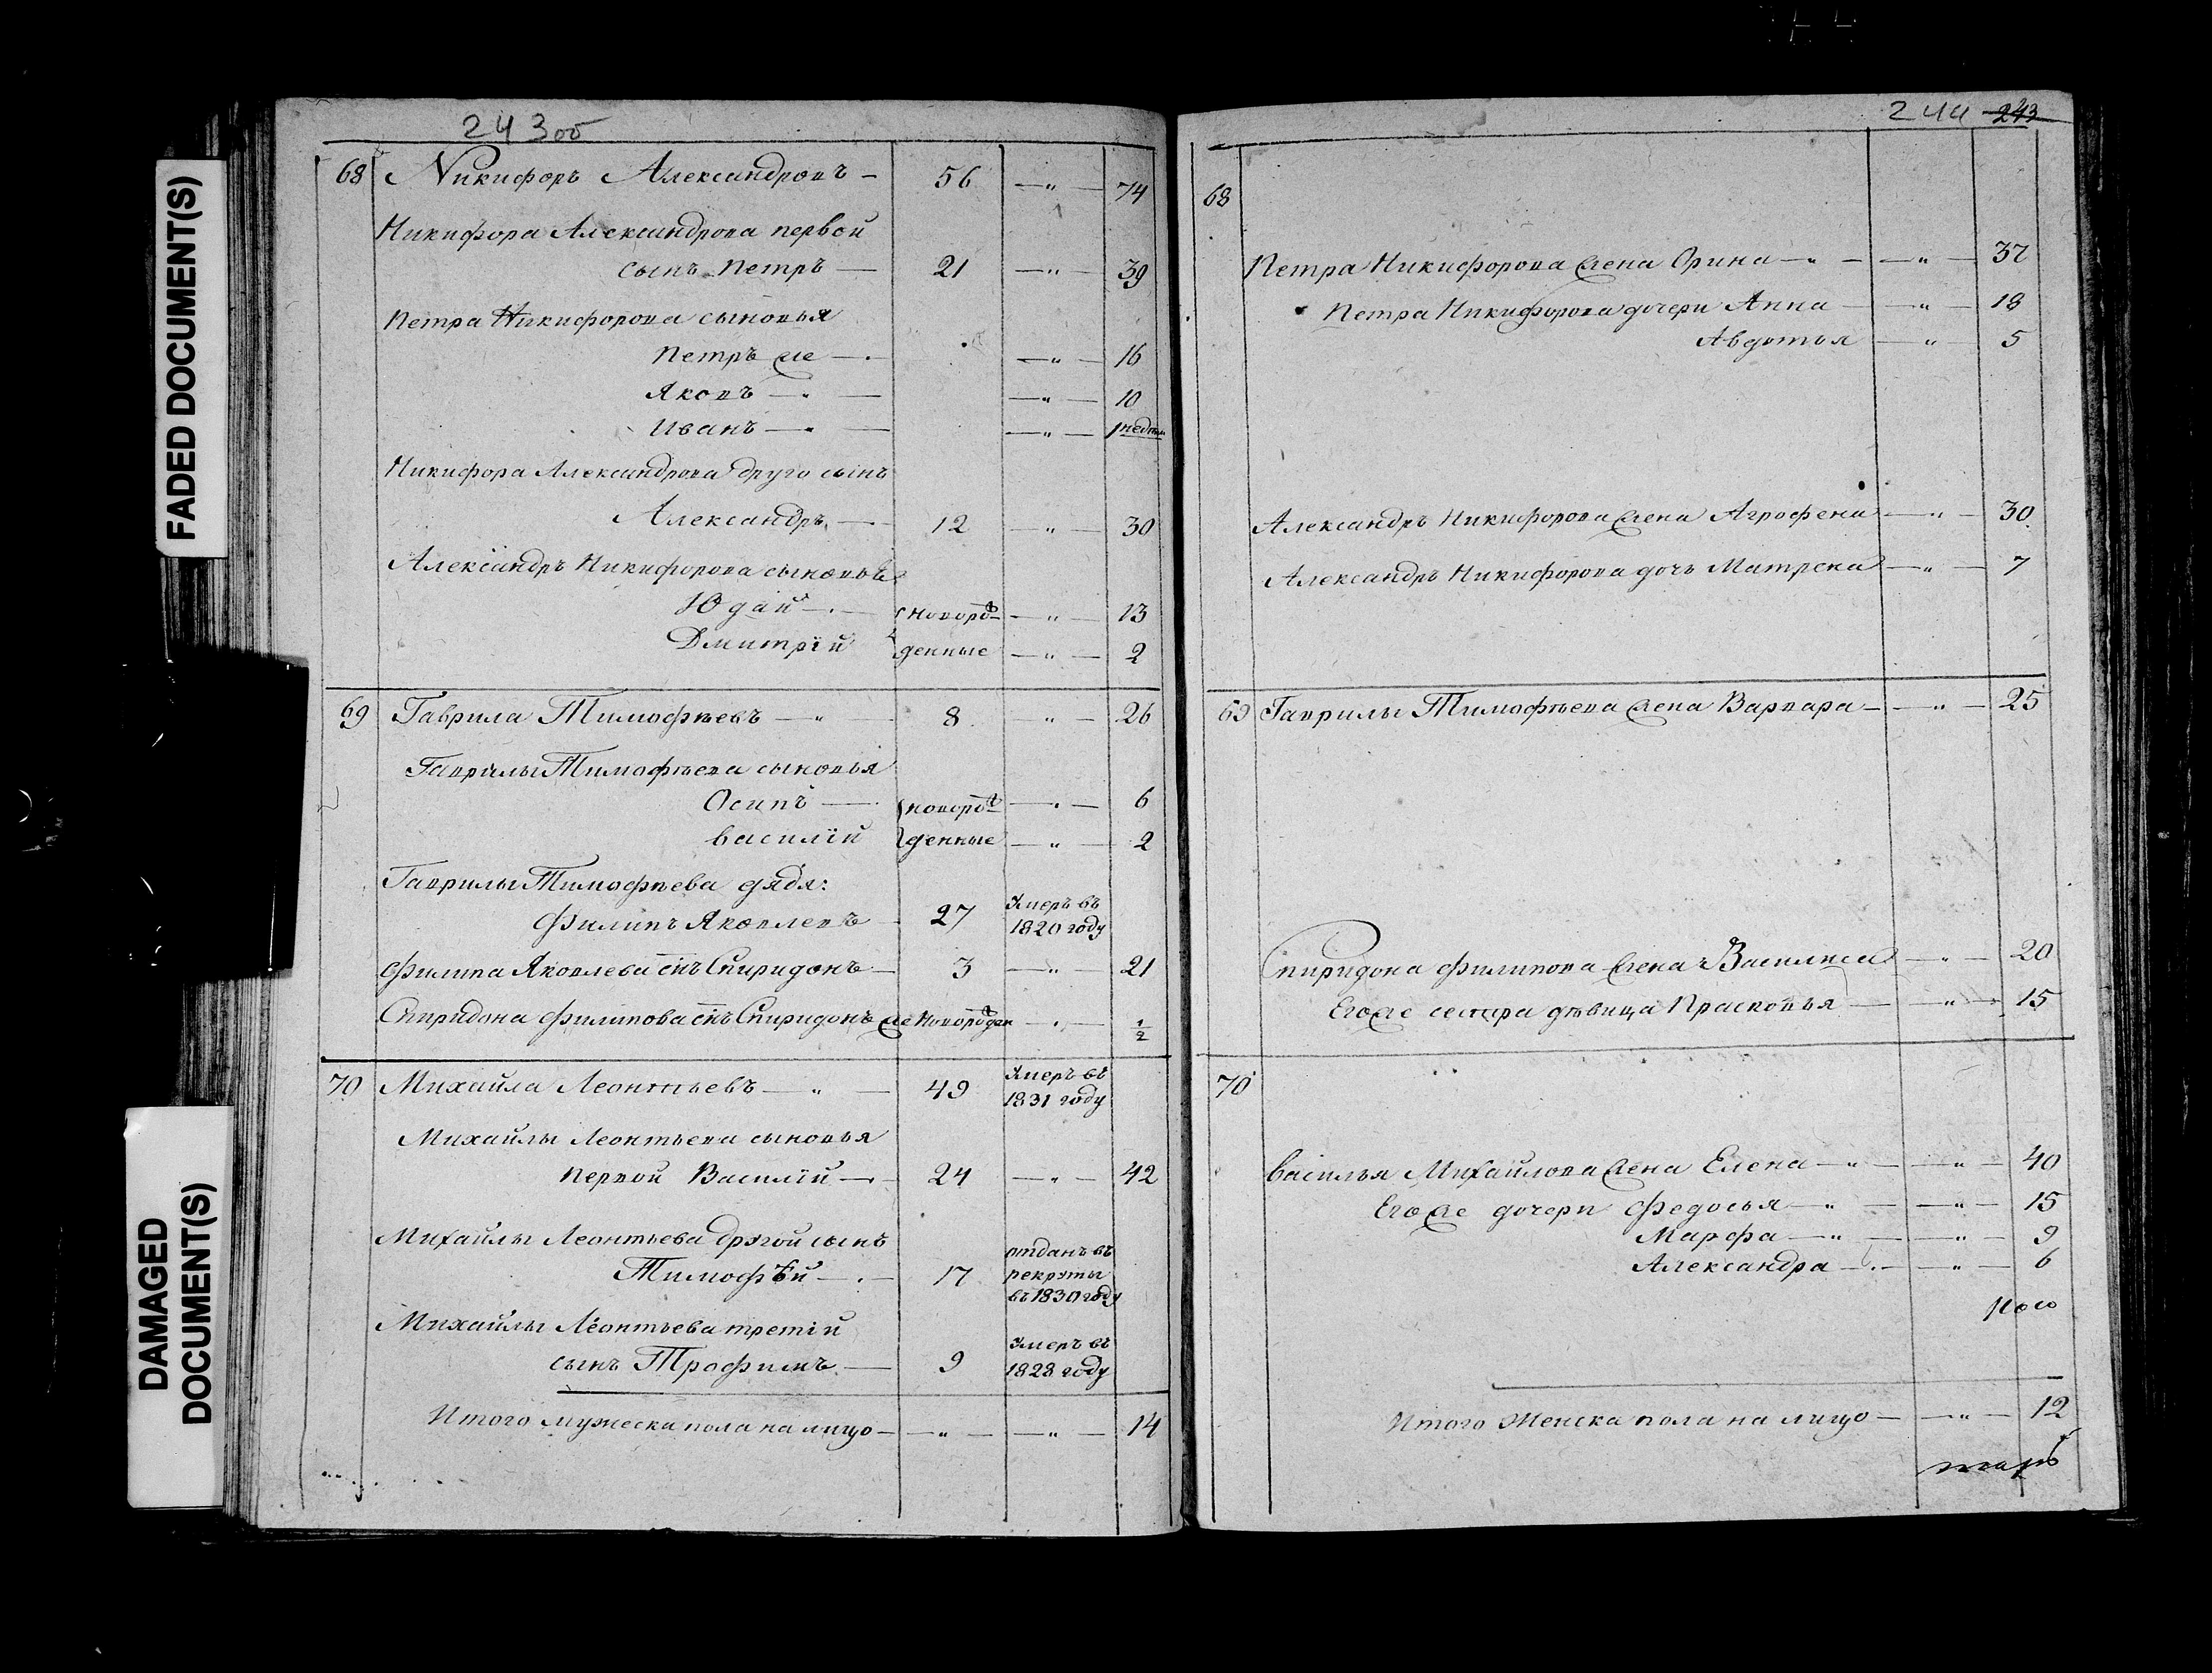 FADED DOCUMENT(S)
DAMAGED
DOCUMENT(S)
243об
68 Никифоръ Александровъ — 56 — " — 74
Никифора Александрова первой
сынъ Петръ — 21 — " — 39
Петра Никифорова сыновья
Петръ же — — " — 16
Яковъ — " — — " — 10
Иванъ — " — — " — 1 недели
Никифора Александрова друго сынъ
Александръ — 12 — " — 30
Александръ Никифорова сыновья
Юдай — новорож — " — 13
Дмитрій денные — " — 2
69 Гаврила Тимофѣевъ — " — 8 " — 26
Гаврилы Тимофѣева сыновья
Осипъ — новорож — " — 6
Василій денные — " — 2
Гаврилы Тимофѣева дядя:
Филипъ Яковлевъ — 27 Умеръ въ
1820 году
Филипа Яковлева снъ Спиридонъ — 3 — " — 21
Спиридона Филипова снъ Спиридонъ же новорожден — " — 1/2
70 Михайла Леонтьевъ — " — 49 Умеръ въ
1831 году
Михайлы Леонтьева сыновья
первой Василій — 24 — " — 42
Михайлы Леонтьева другой сынъ
Тимофѣй — " — 17 отданъ въ
рекруты
въ 1830 году
Михайлы Леонтьева третій
сынъ Трофимъ — 9 Умеръ въ
1828 году
Итого мужеска пола на лицо — — " — — " — 14
244 243
68
Петра Никифорова жена Орина — " — — " — 37
Петра Никифорова дочери Анна — — " — 18
Авдотья — " — 5
Александръ Никифорова жена Агрофена — " — 30
Александръ Никифорова дочь Матрена — " — 7
69 Гаврилы Тимофѣева жена Варвара — — " — 25
Спиридона Филипова жена Василиса — " — 20
Егоже сестра дѣвица Прасковья — — " — 15
70
Василья Михайлова жена Елена — " — — " — 40
Егоже дочери Федосья — " — — " — 15
Марфа — " — — " — 9
Александра — " — — " — 6
Итого женска пола на лицо — — " — 12